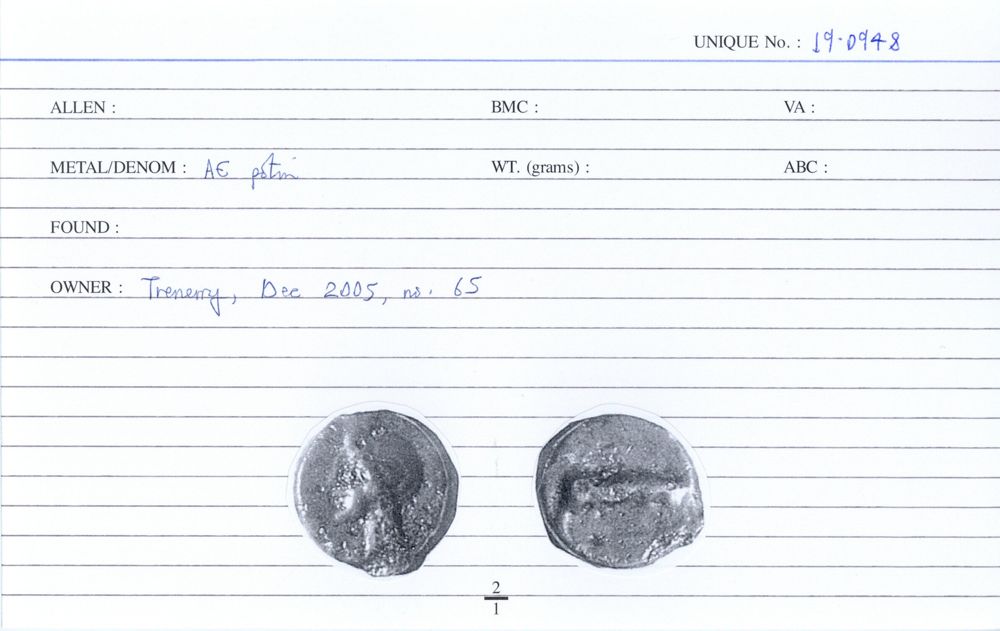 UNIQUE No. : 19.0948
ALLEN : BMC : VA :
METAL/DENOM : AE potin WT. (grams) : ABC :
FOUND :
OWNER : Trenerry, Dec 2005, no. 65
2
1